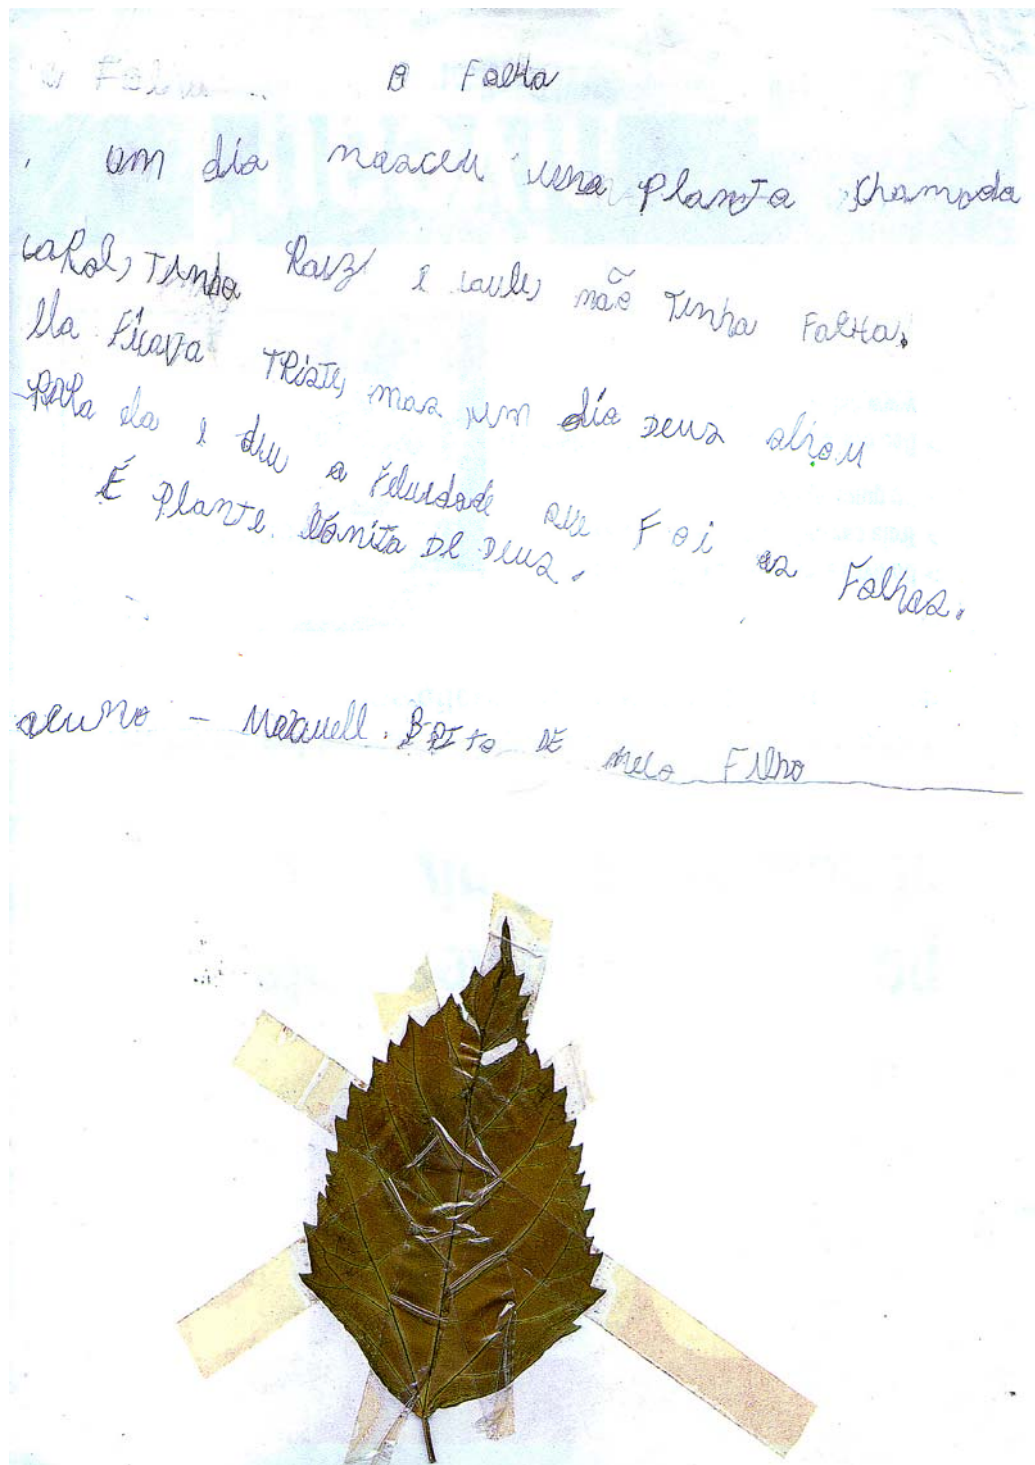 A Folha
um dia nasceu uma planta chamada
Carol, Tinha Raiz e caule, não Tinha Folha.
Ela Ficava TRiste, mas um dia Deus olhou
PaRa ela e deu a Felicidade que Foi as Folhas.
É Plante bonita De Deus.
aluno - Maxuell. BRito DE Melo Filho